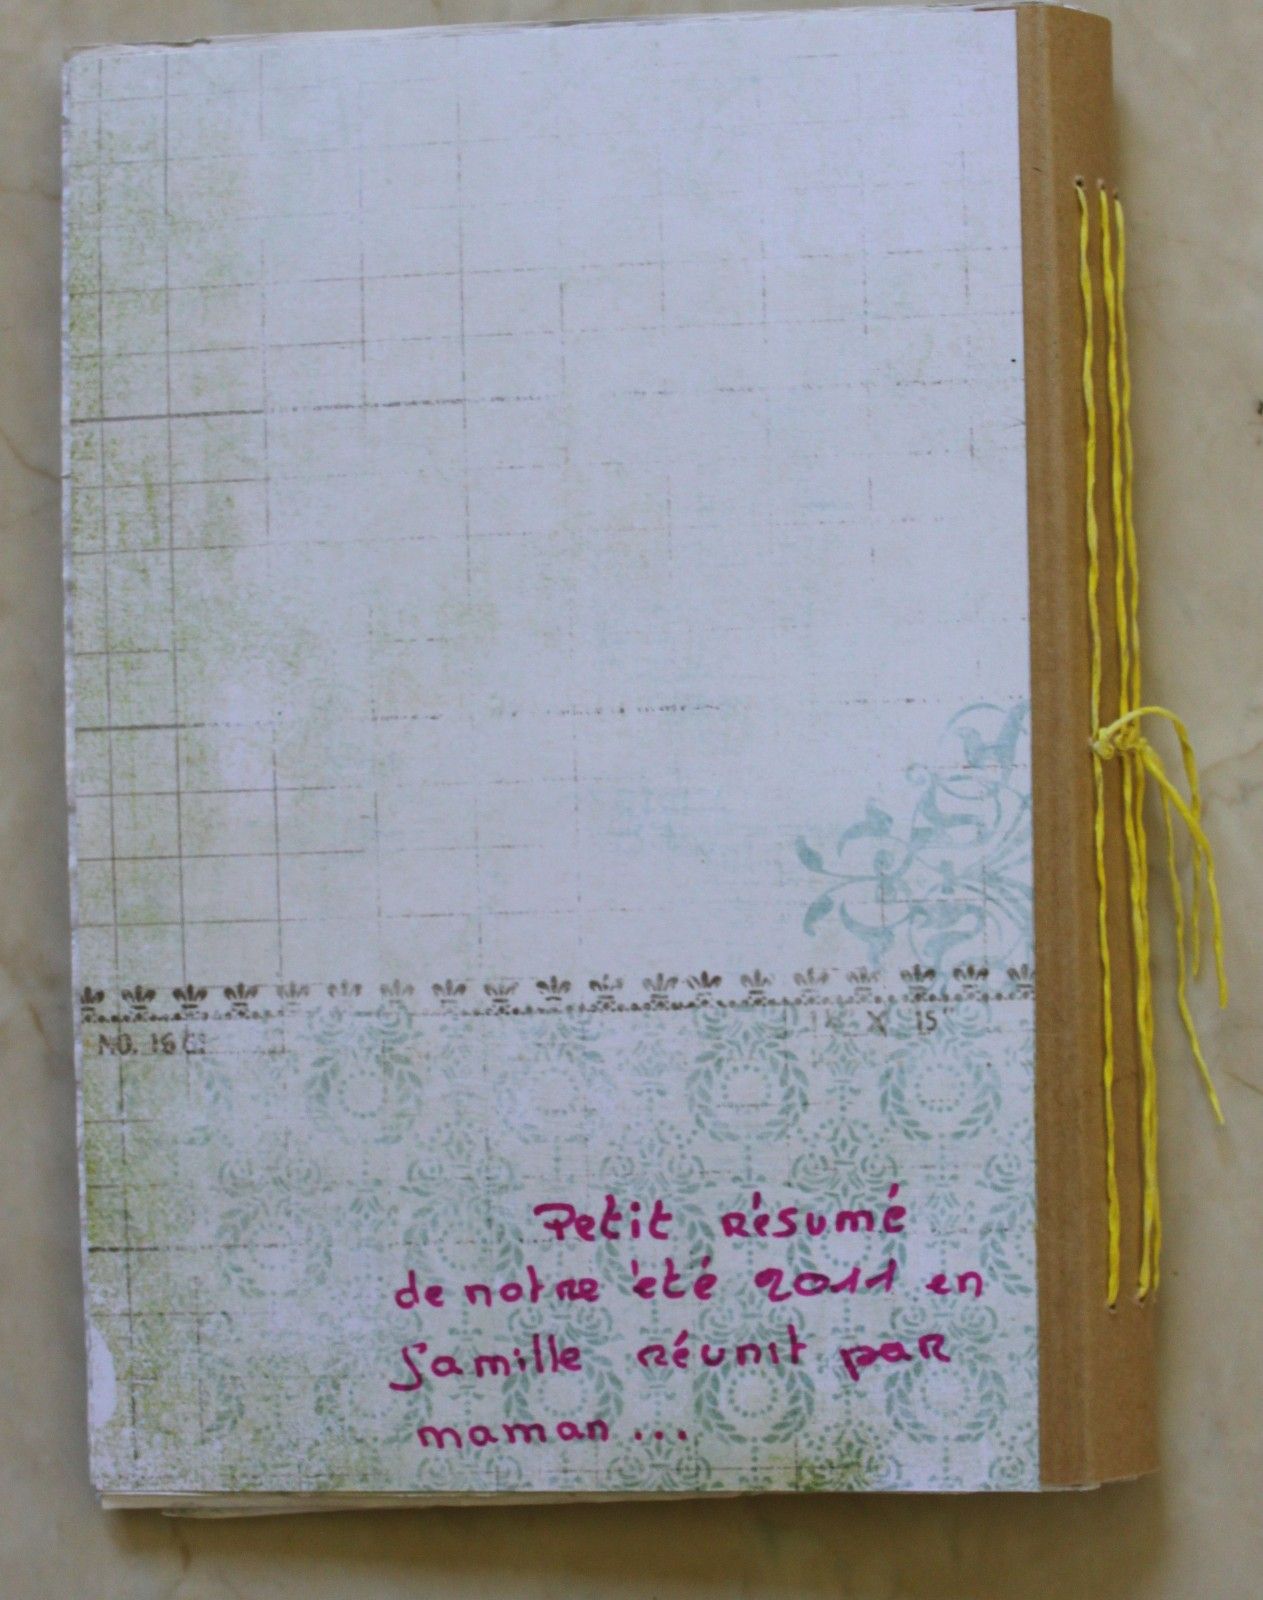 NO. 16 C.
X 15"
Petit résumé
de notre été 2011 en
famille réunit par
maman...